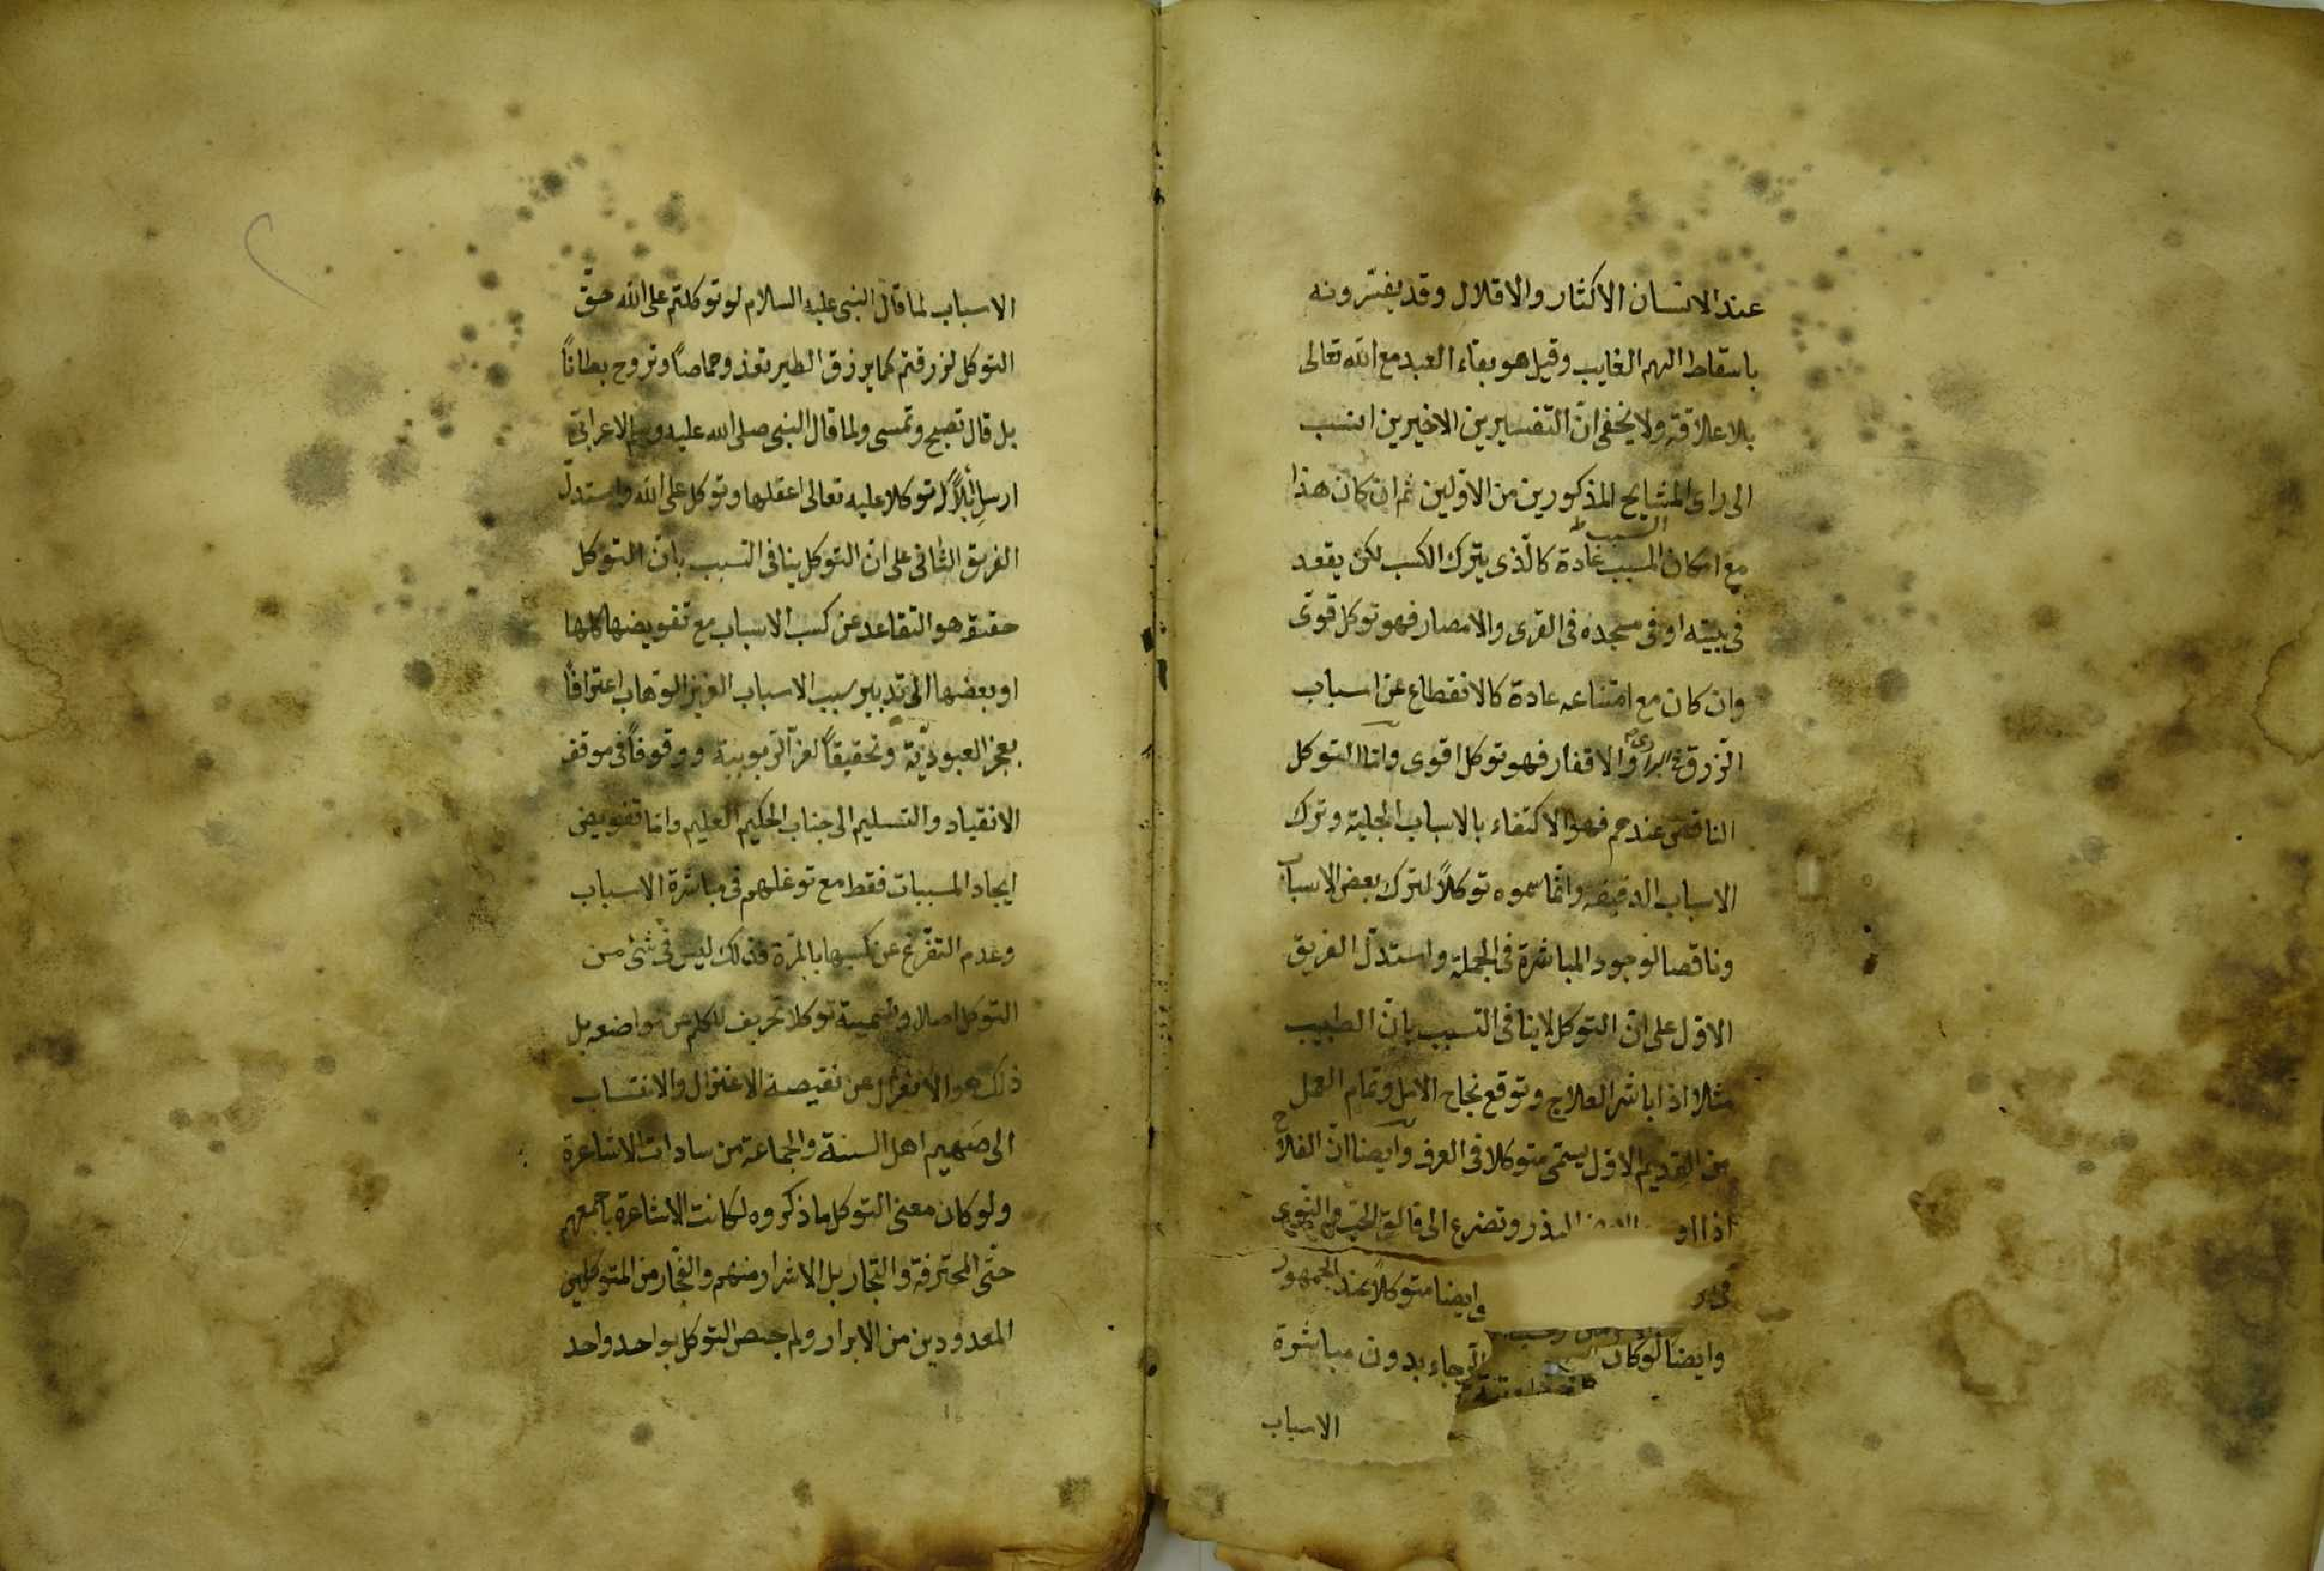 عند الانسان الاكثار والاقلال وقد يفسّرونه
باسقاط الهم الغايب وقيل هو بقاء العبد مع الله تعالى
بلا علاقة ولا يخفى انّ التفسيرين الاخيرين انسب
الى راى المشايخ المذكورين من الاوّلين ثم ان كان هذا
السبب
مع امكان المسبب عادة كالّذى يترك الكسب لكن يقعد
فى بيته او فى مسجده فى القرى والامصار فهو توكل قوىّ
وان كان مع امتناعه عادة كالانقطاع عن اسباب
الرّزق فى البرارى والاقفار فهو توكل اقوى وامّا التوكل
الناقص عندهم فهو الاكتفاء بالاسباب الجلية وترك
الاسباب الدقيقة وانّما سموه توكلاً لترك بعض الاسباب
وناقصا لوجود المباشرة فى الجملة واستدلّ الفريق
الاوّل على انّ التوكل لا ينافى التسبب بانّ الطبيب
مثلا اذا باشر العلاج وتوقع نجاح الامل وتمام العمل
من القديم الاوّل يسمّى متوكلا فى العرف وايضا انّ الفلاح
اذا البذر وتضرع الى فالق الحبّ والنّوى
ايضا متوكلاً عند الجمهور
وايضا لو كان الرّجاء بدون مباشرة
الاسباب
الاسباب لما قال النبى عليه السلام لو توكلتم على الله حقّ
التوكل لرزقتم كما يرزق الطير تغذو خماصاً وتروح بطاناً
بل قال تصبح وتمسى ولما قال النبى صلى الله عليه وسلم لاعرابىّ
ارسل ابلاً له توكلا عليه تعالى اعقلها وتوكل على الله واستدلّ
الفريق الثانى على انّ التوكل ينافى التسبب بانّ التوكل
حقيقة هو التقاعد عن كسب الاسباب مع تفويضها كلها
او بعضها الى تدبير مسبب الاسباب العزيز الوّهاب اعترافاً
بعجز العبوديّة وتحقيقاً لعزّ الرّبوبية ووقوفاً فى موقف
الانقياد والتسليم الى جناب الحكيم العليم وامّا تفويض
ايجاد المسببات فقط مع توغلهم فى مباشرة الاسباب
وعدم التفرّغ عن كسبها بالمرّة فذلك ليس فى شئ من
التوكل اصلا وتسميته توكلا تحريف للكلم عن مواضعه بل
ذلك هو الانعزال عن نقيصة الاعتزال والانتساب
الى صميم اهل السنة والجماعة من سادات الاشاعرة
ولو كان معنى التوكل ما ذكروه لكانت الاشاعرة باجمعهم
حتّى المحترفة والتجّار بل الاشرار منهم والفجّار من المتوكلين
المعدودين من الابرار ولم يختص التوكل بواحد واحد